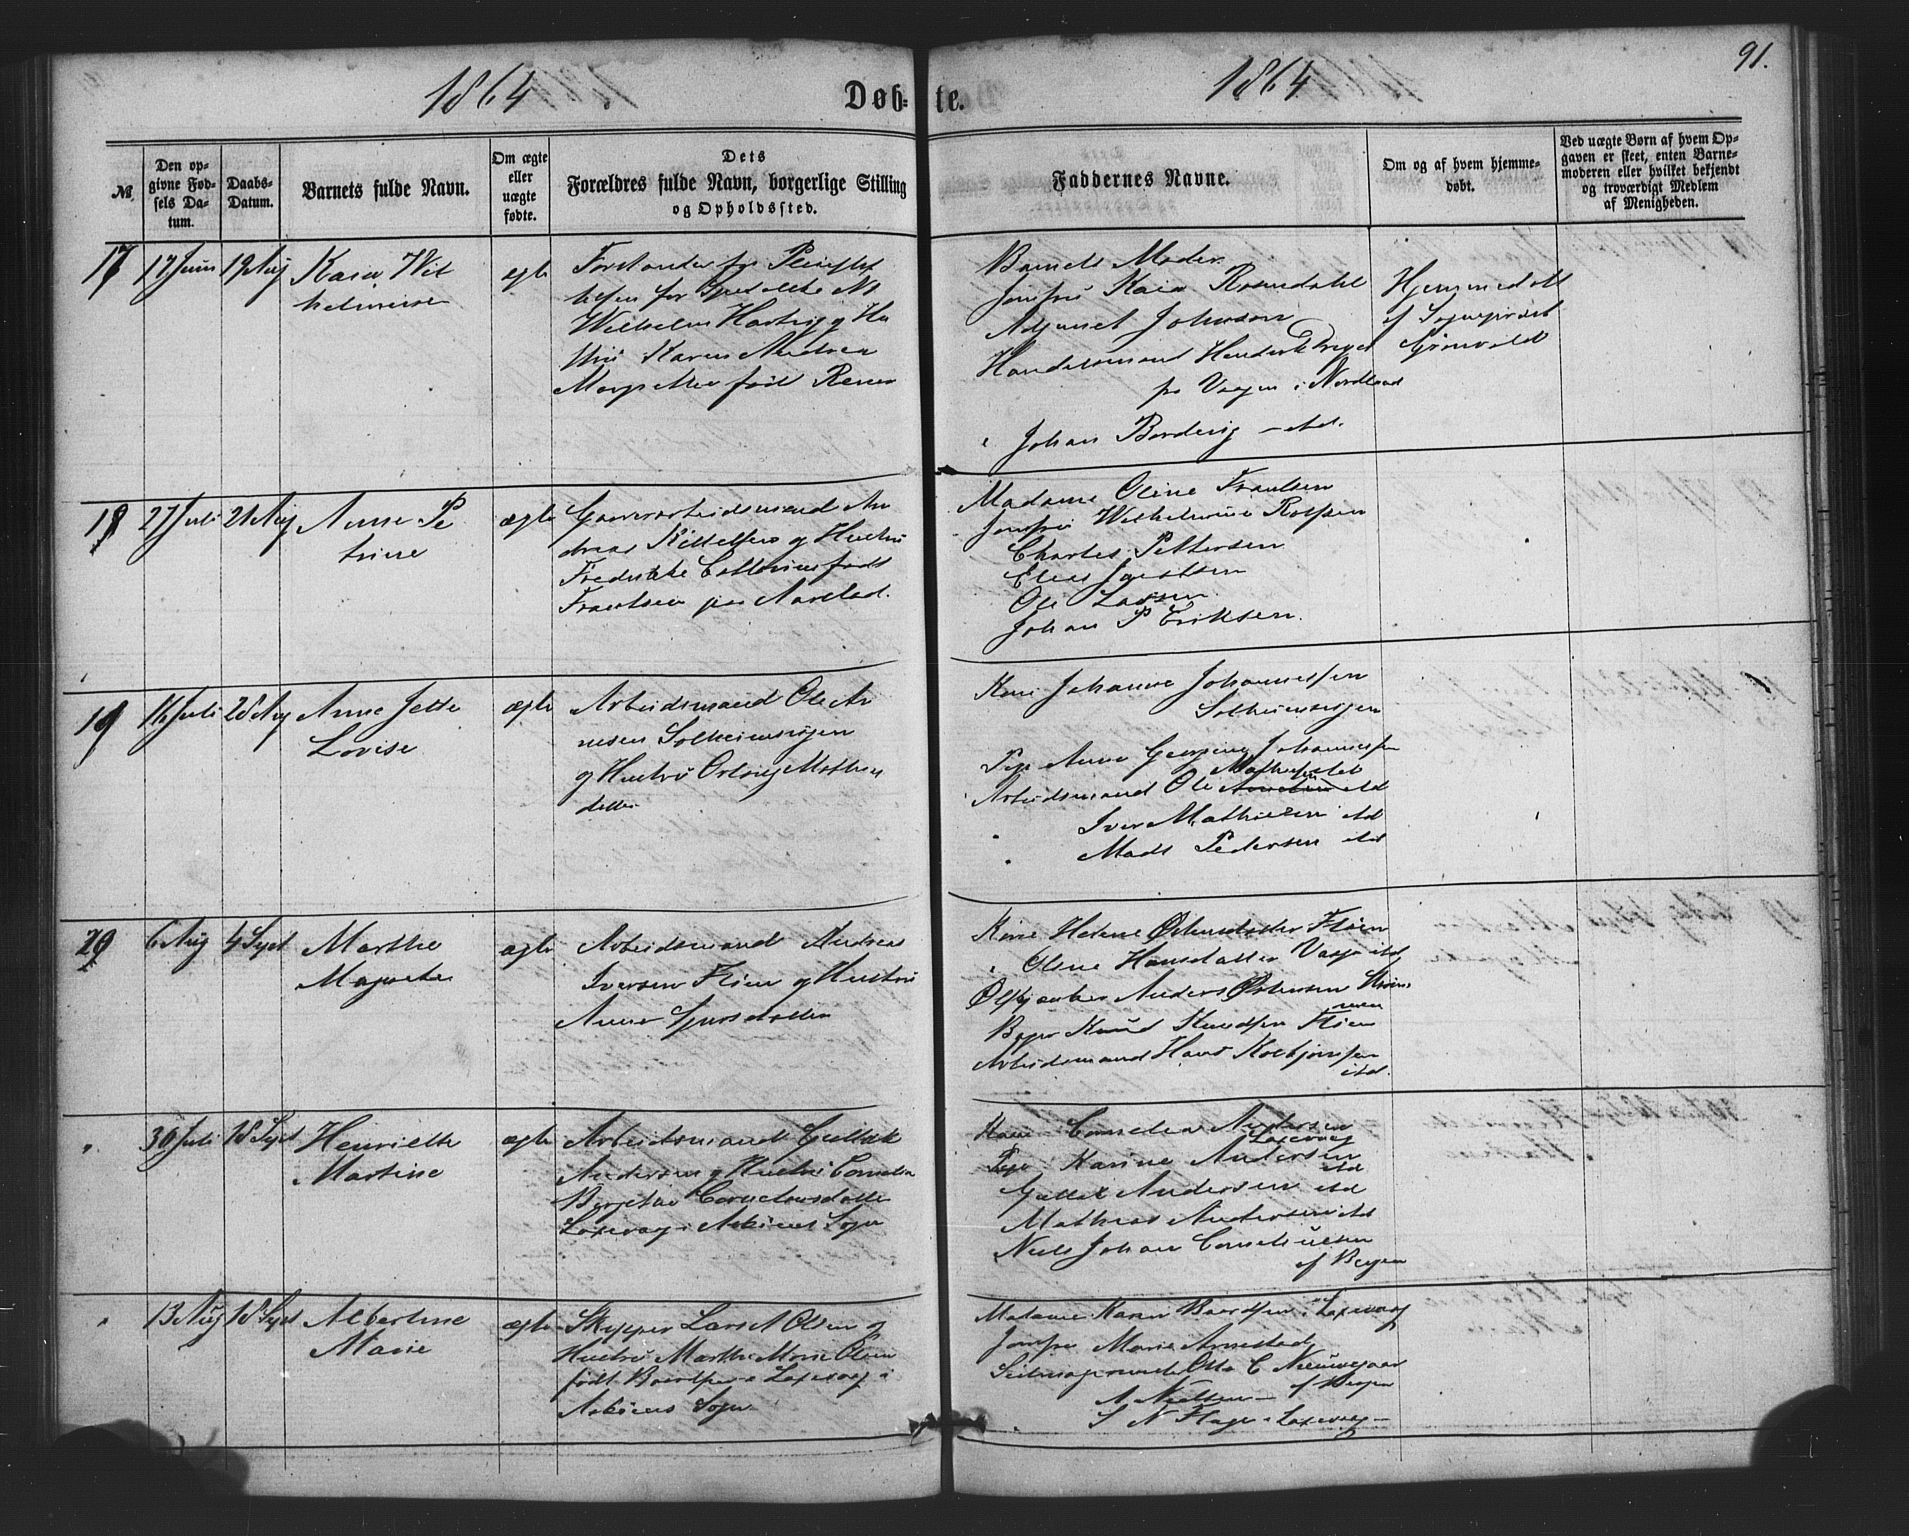 91.
1864
Døb-te.
1864
№
Den op-
givne Fød-
sels Da-
tum.
Daabs-
Datum.
Barnets fulde Navn.
Om ægte
eller
uægte
fødte.
Dets
Forældres fulde Navn, borgerlige Stilling
og Opholdssted.
Faddernes Navne.
Om og af hvem hjemme-
døbt.
Ved uægte Børn af hvem Op-
gaven er skeet, enten Barne-
moderen eller hvilket bekjendt
og troværdigt Medlem
af Menigheden.
17
17 Juni
19 Aug
Kaia Wil
helmine
egte
Forstander for Pleiestif
telsen for Spedalske No
Wilhelm Hartvig og Hu
stru Karen Andrea
Margrethe født
Barnets Moder
Jomfru Kaia Rosendahl
Adjunct Johnson
Handelsmand Henderik Dreyer
fra Vaagen i Nordland
Johan Bordevig - itd.
Hjemmedøbt
af Sognepræst
Grønvold
18
27 Juli
21 Aug
Anne Pe
trine
ægte
Garverarbeidsmand An
dreas Kittelsen og Hustru
Fredrikke Cathrine født
Frantsen paa Aarstad.
Madame Oline Frantsen
Jomfru Wilhelmine Rolfsen
Charles Pettersen
Elias Jacobsen
Ole Larsen
Johan P Eriksen.
19
16 Juli
28 Aug
Anne Jette
Lovise
ægte
Arbeidsmand Ole Ar
nesen Solheimsvigen
og Hustru Mathias
datter
Kone Johanne Johannessen
Solheimsvigen
Pige Anne Georgine Johannessen
Arbeidsmand Ole itd
Iver Mathiesen itd
Mads Pedersen itd
20
6 Aug
4 Sept
Marthe
Magreta
ægte
Arbeidsmand Andreas
Iversen Fløen og Hustru
Anne Sjursdatter
Kone Helene Østensdatter Fløen
Oline Hansdatter itd
Anders Østensen
Knud Knudsen Fløen
Arbeidsmand Hans Kolbjørnsen
itd.
30 Juli
18 Sept
Henriette
Martine
ægte
Arbeidsmand Gullak
Andersen og Hustru Cornelia
Bergitha Corneliusdatter
Laxevaag i Askøens Sogn
Kone Cornelia Andersen
Laxevaag
Pige Karine Andersen
itd
Gullak Andersen itd
Mathias Andersen itd
Niels Johan Corneliussen
af Bergen
13 Aug
18 Sept
Albertine
Marie
ægte
Skipper Lars A Olsen og
Hustru Marthe Marie Olsen
født Baardsen i Laxevaag i
Askøens Sogn
Madame Karen Baardsen i Laxevaag
Jomfru Marie Arnestad
Otto C Neuwejaar
af Bergen
A Nielsen -
S N Hage i Laxevaag -